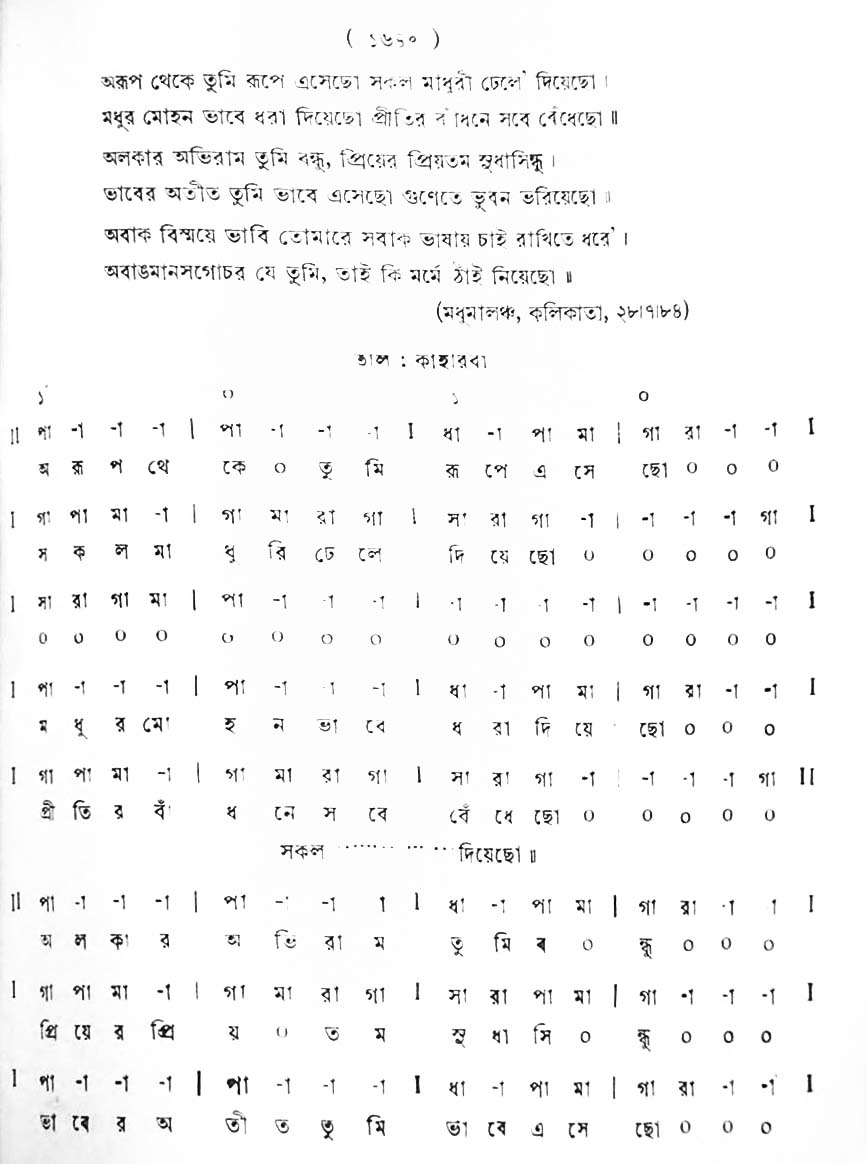 ( ১৬৯০ )
অরূপ থেকে তুমি রূপে এসেছো সকল মাধুরী ঢেলে' দিয়েছো ।
মধুর মোহন ভাবে ধরা দিয়েছো প্রীতির বাঁধনে সবে বেঁধেছো ॥
অলকার অভিরাম তুমি বন্ধু, প্রিয়ের প্রিয়তম সুধাসিন্ধু ।
ভাবের অতীত তুমি ভাবে এসেছো গুণেতে ভুবন ভরিয়েছো ॥
অবাক বিস্ময়ে ভাবি তোমারে সবাক ভাষায় চাই রাখিতে ধরে' ।
অবাঙমানসগোচর যে তুমি, তাই কি মর্মে ঠাঁই নিয়েছো ॥
(মধুমালঞ্চ, কলিকাতা, ২৮।৭।৮৪)
তাল : কাহারবা
১ ০ ১ ০
II পা -া -া -া | পা -া -া -া I ধা -া পা মা | গা রা -া -া I
অ রূ প থে কে ০ তু মি রূ পে এ সে ছো ০ ০ ০
I গা পা মা -া | গা মা রা গা I সা রা গা -া | -া -া -া গা I
স ক ল মা ধু রি ঢে লে দি য়ে ছো ০ ০ ০ ০ ০
I সা রা গা মা | পা -া -া -া I -া -া -া -া | -া -া -া -া I
০ ০ ০ ০ ০ ০ ০ ০ ০ ০ ০ ০ ০ ০ ০ ০
I পা -া -া -া | পা -া -া -া I ধা -া পা মা | গা রা -া -া I
ম ধু র মো হ ন ভা বে ধ রা দি য়ে ছো ০ ০ ০
I গা পা মা -া | গা মা রা গা I সা রা গা -া | -া -া -া গা II
প্রী তি র বাঁ ধ নে স বে বেঁ ধে ছো ০ ০ ০ ০ ০
সকল ............ দিয়েছো ॥
II পা -া -া -া | পা -া -া া I ধা -া পা মা | গা রা -া া I
অ ল কা র অ ভি রা ম তু মি ব ০ ন্ধু ০ ০ ০
I গা পা মা -া | গা মা রা গা I সা রা পা মা | গা -া -া -া I
প্রি য়ে র প্রি য় ০ ত ম সু ধা সি ০ ন্ধু ০ ০ ০
I পা -া -া -া | পা -া -া -া I ধা -া পা মা | গা রা -া -া I
ভা বে র অ তী ত তু মি ভা বে এ সে ছো ০ ০ ০